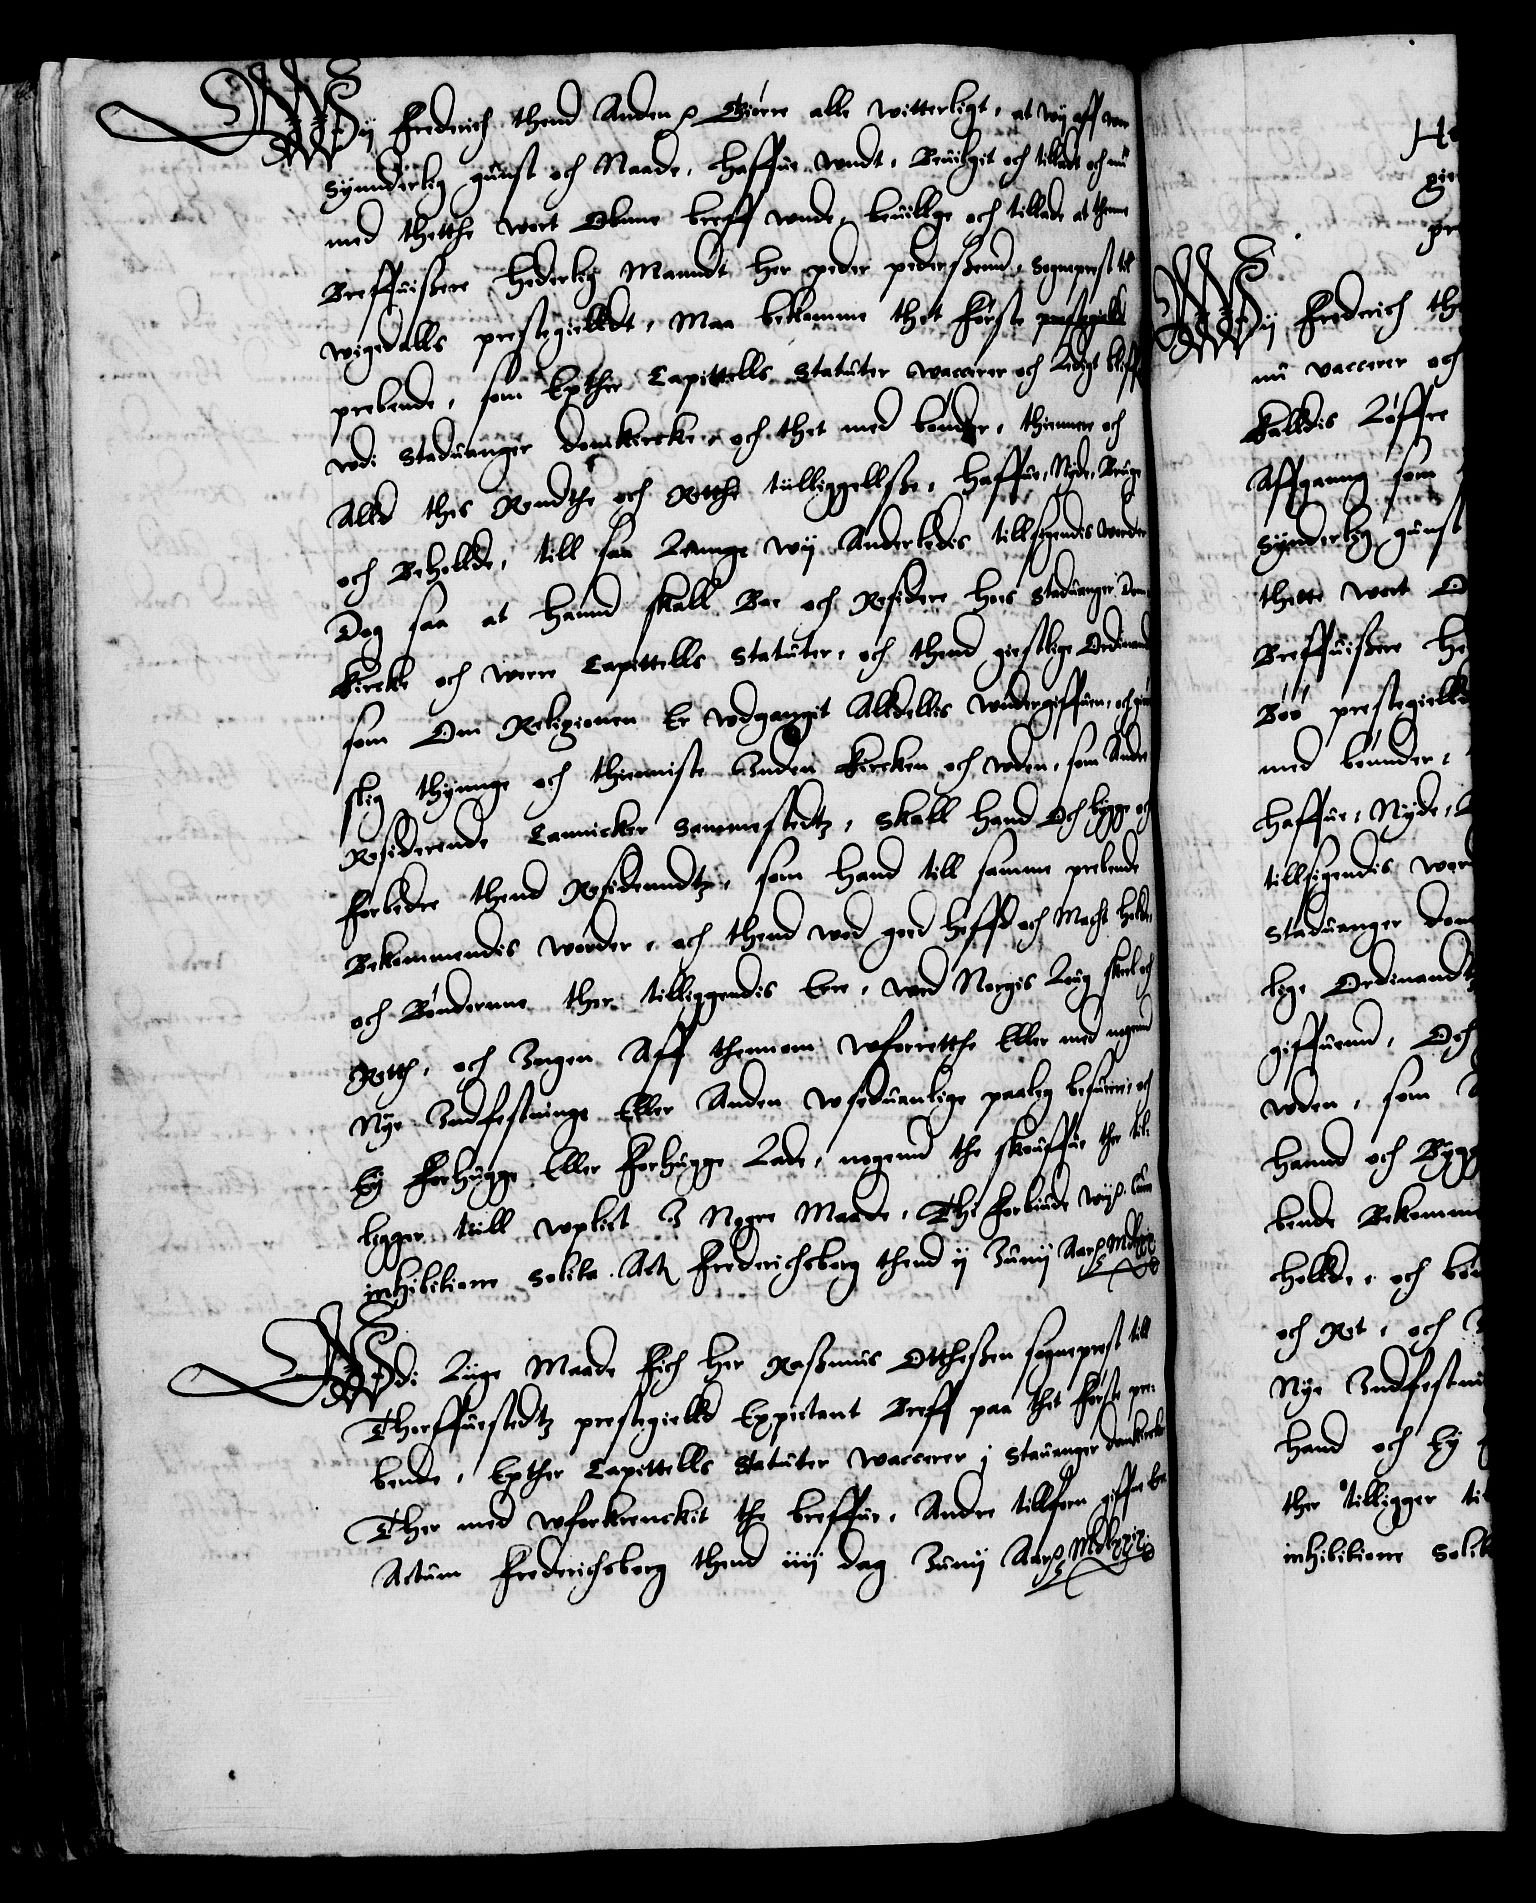 Wij Frederich thend Anden etc. Giørre alle witterligt, at wij aff wor
synnderlig gunst och Naade, haffue wndt, Beuilgit och tilladt och nu
med thette wort Obne breff wnde, beuillge och tillade at thenne
Breffuisere hederlig Manndt her peder pedersenn, sogneprest till
wigedalls prestegielldt, Maa bekomme thet første prestegielld
prebende, som Epther Capittells Statuter waccerer och Ledigt bliffr
wdi Staduanger domkircke, och thet med bønder, thiennere och
Alld thes Rendthe och Retthe tilliggellsse, haffue, Nyde, Bruge
och Behollde, till saa Lannge wij Anderledis tillsigendis worder
Dog saa at hannd skall Boe och Residere hoes Staduanger Dom
kircke och were Capittells Statuter, och thend giestlige Ordinandtz
som Om Religionen Er wdgangit Alldellis wndergiffuen, och giøre
slig thynge och thienniste Inden kircken och wden, som Andre
Residerende Cannicker sammestedtz, Skall hand Och bygge och
forbedre thend Residenndtz, som hand till samme prebende
Bekommendis worder, och thend wed god heffd och Macht holde,
och Bønderne ther tilliggendis Ere, wed Norgis Loug skiel och
Rett, och Ingen Aff thennom wforretthe Eller med nogen
Nye Indfestninge Eller Anden wseduanlige paaleg besuere, och
Ej Forhugge Eller Forhugge Lade, nogenn the skouffue ther til-
ligger till wpligt I Nogre Maade, Thi forbiude wij etc. Cum
inhibitione solita. Act. Frederichsborg thend ij Junij Aar etc. Mdlxxix
Wdi Lige Maade fich her Rasmus Otthessen sogneprest till
Thorffuestedtz prestegielld Expectant Breff paa thet første pre-
bende, Epther Capittells Statuter waccerer i Stauanger domkircke
Ther med wforkrenckit the breffue, Andre tillforn giffne Ere
Actum Frederichsborg thend iiij dag Junij Aar etc. Mdlxxix.
Wij Frederich the
nu vaccerer och
kalldis Løffre
Affgang som
Synderlig gunst
thette wort O
Breffuisere he
Bøø prestegielld
med bønnder,
haffue, Nyde,
tillsigendis word
Staduanger dom
lige Ordinandtz
giffuenn, Och
wden, som A
hannd och Bygg
bende Bekomme
hollde, och bøn
och Ret, och I
Nye Indfestni
hand och Ej
ther tilligger til
inhibitione solit